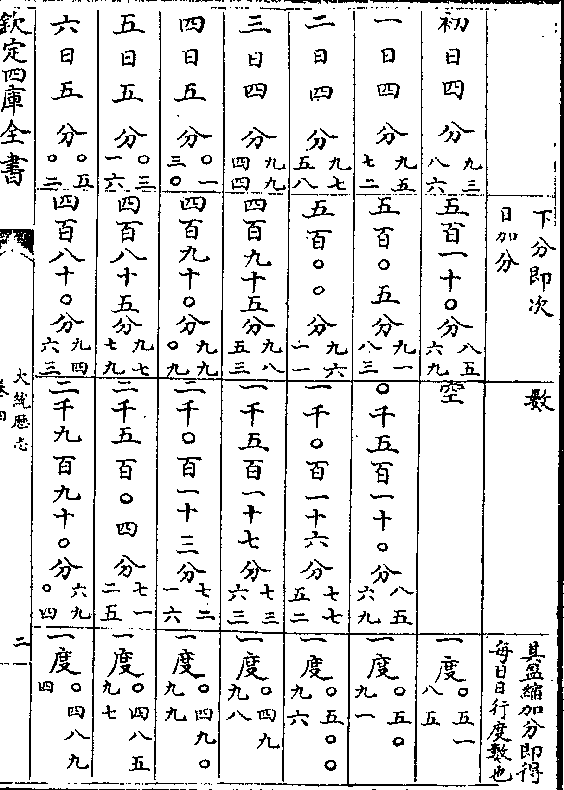 下分即次
日加分
數
其盈縮加分即得
每日日行度數也
初日四分九三八六 五百一十〇分八五六九 空 一度〇五一八五
一日四分九五七二 五百〇五分九一八三 〇千五百一十〇分八五六九 一度〇五〇九一
二日四分九七五八 五百〇〇分九六一一 一千〇百一十六分七七五二 一度〇五〇〇九六
三日四分九九四四 四百九十五分九八五三 一千五百一十七分七三六三 一度〇四九九八
四日五分〇一三〇 四百九十〇分九九〇九 二千〇百一十三分七二一六 一度〇四九〇九九
五日五分〇三一六 四百八十五分九七七九 二千五百〇四分七一二五 一度〇四八五九七
六日五分〇五〇二 四百八十〇分九四六三 二千九百九十〇分六九〇四 一度〇四八九四
欽定四庫全書
大統歷志
二